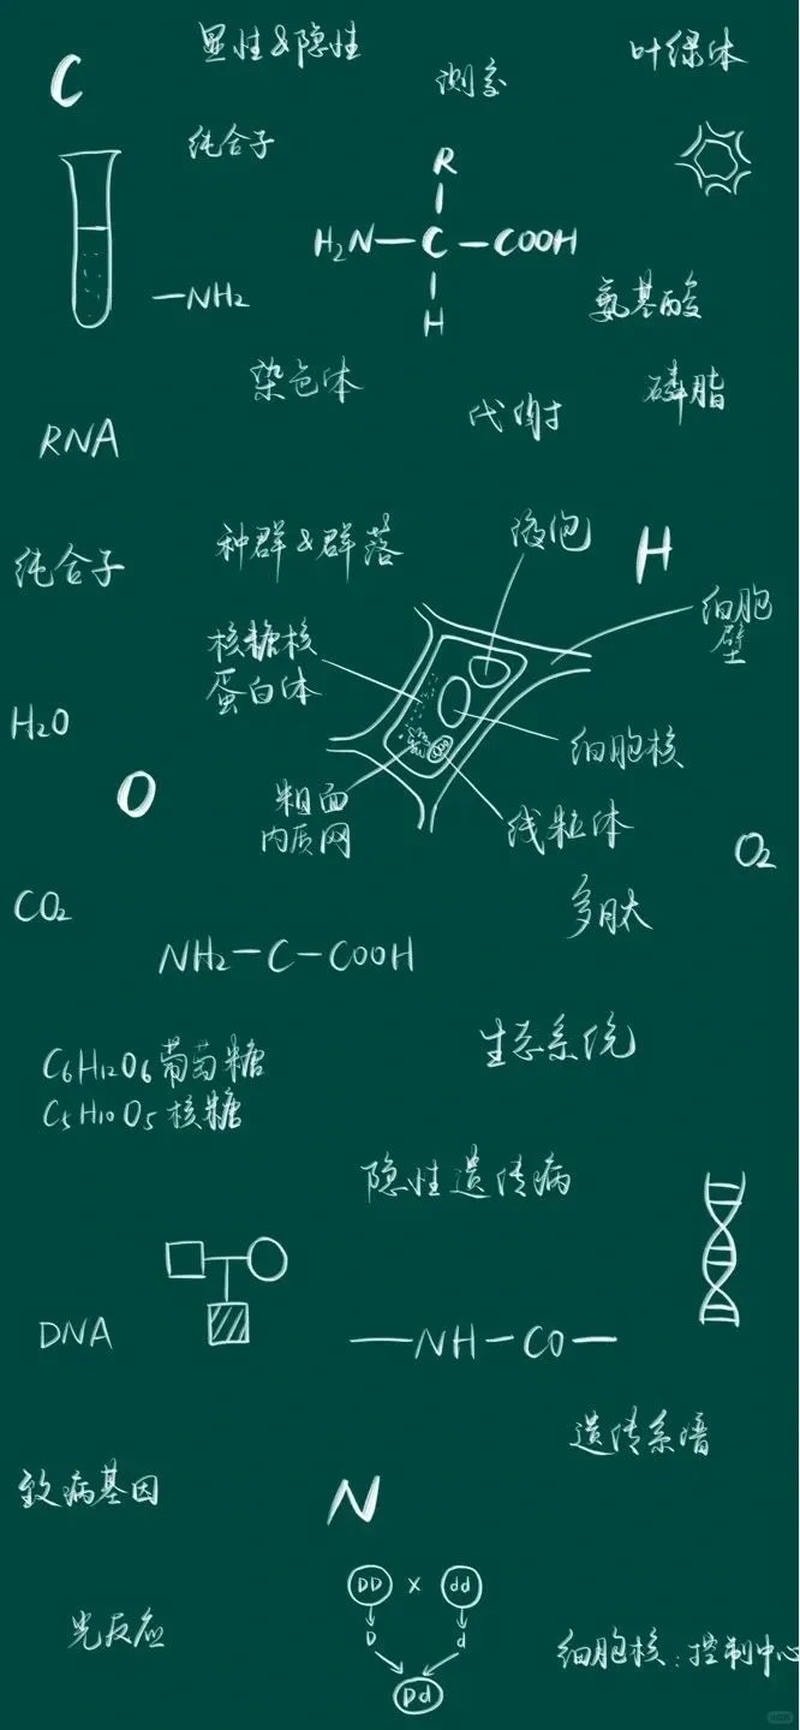 C
显性&隐性
测交
叶绿体
纯合子
R
H₂N—C—COOH
H
—NH₂
氨基酸
染色体
代谢
磷脂
RNA
种群&群落
液泡
H
纯合子
细胞
壁
核糖核
蛋白体
H₂O
细胞核
O
粗面
内质网
线粒体
O₂
CO₂
多肽
NH₂—C—COOH
生态系统
C₆H₁₂O₆葡萄糖
C₅H₁₀O₅核糖
隐性遗传病
DNA
—NH—CO—
遗传系谱
致病基因
N
DD × dd
D d
Dd
光反应
细胞核：控制中心